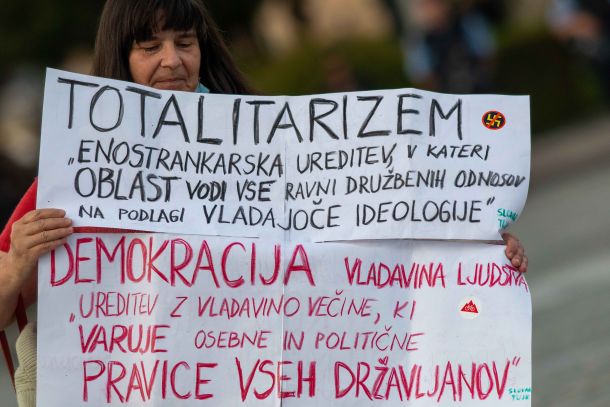 TOTALITARIZEM
„ENOSTRANKARSKA UREDITEV, V KATERI
OBLAST VODI VSE RAVNI DRUŽBENIH ODNOSOV
NA PODLAGI VLADAJOČE IDEOLOGIJE"
SLOVAR
TUJK
DEMOKRACIJA VLADAVINA LJUDSTVA
„UREDITEV Z VLADAVINO VEČINE, KI
VARUJE OSEBNE IN POLITIČNE
PRAVICE VSEH DRŽAVLJANOV"
SLOVAR
TUJK